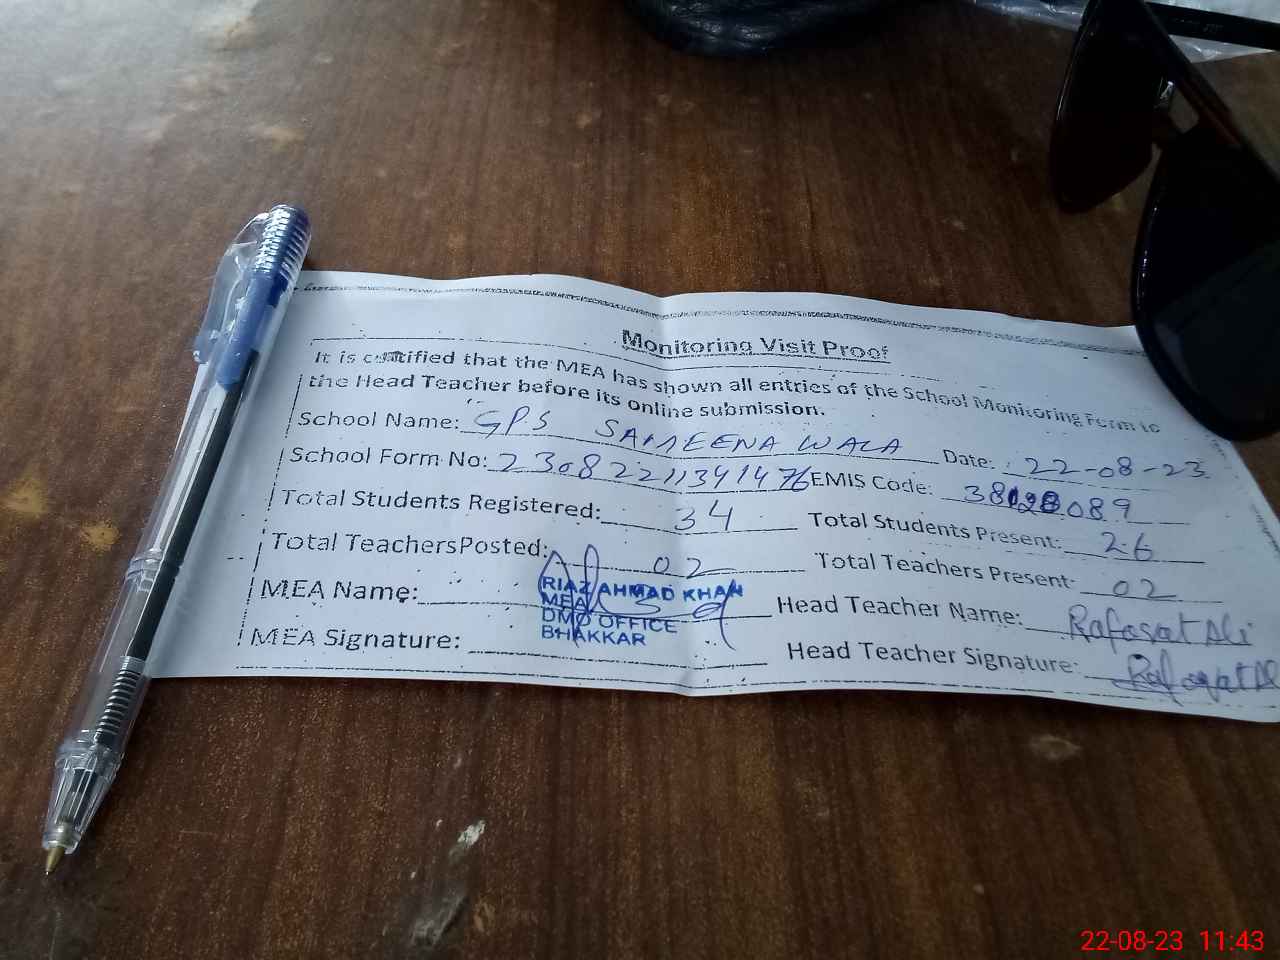 Monitoring Visit Proof
It is certified that the MEA has shown all entries of the School Monitoring Form to
the Head Teacher before its online submission.
School Name: GPS SAMEENA WALA Date: 22-08-23
School Form No: 23082211341476 EMIS Code: 38120089
Total Students Registered: 34 Total Students Present: 26
Total Teachers Posted: 02 Total Teachers Present: 02
MEA Name: Head Teacher Name: Rafasat Ali
RIAZ AHMAD KHAN
MEA
DMO OFFICE
BHAKKAR
MEA Signature: Head Teacher Signature: Rafasat Al
22-08-23 11:43